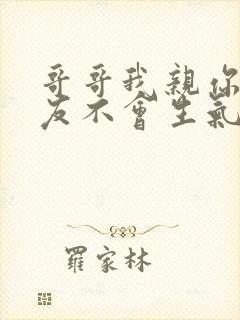 哥哥我親你
友不會生氣
羅家林